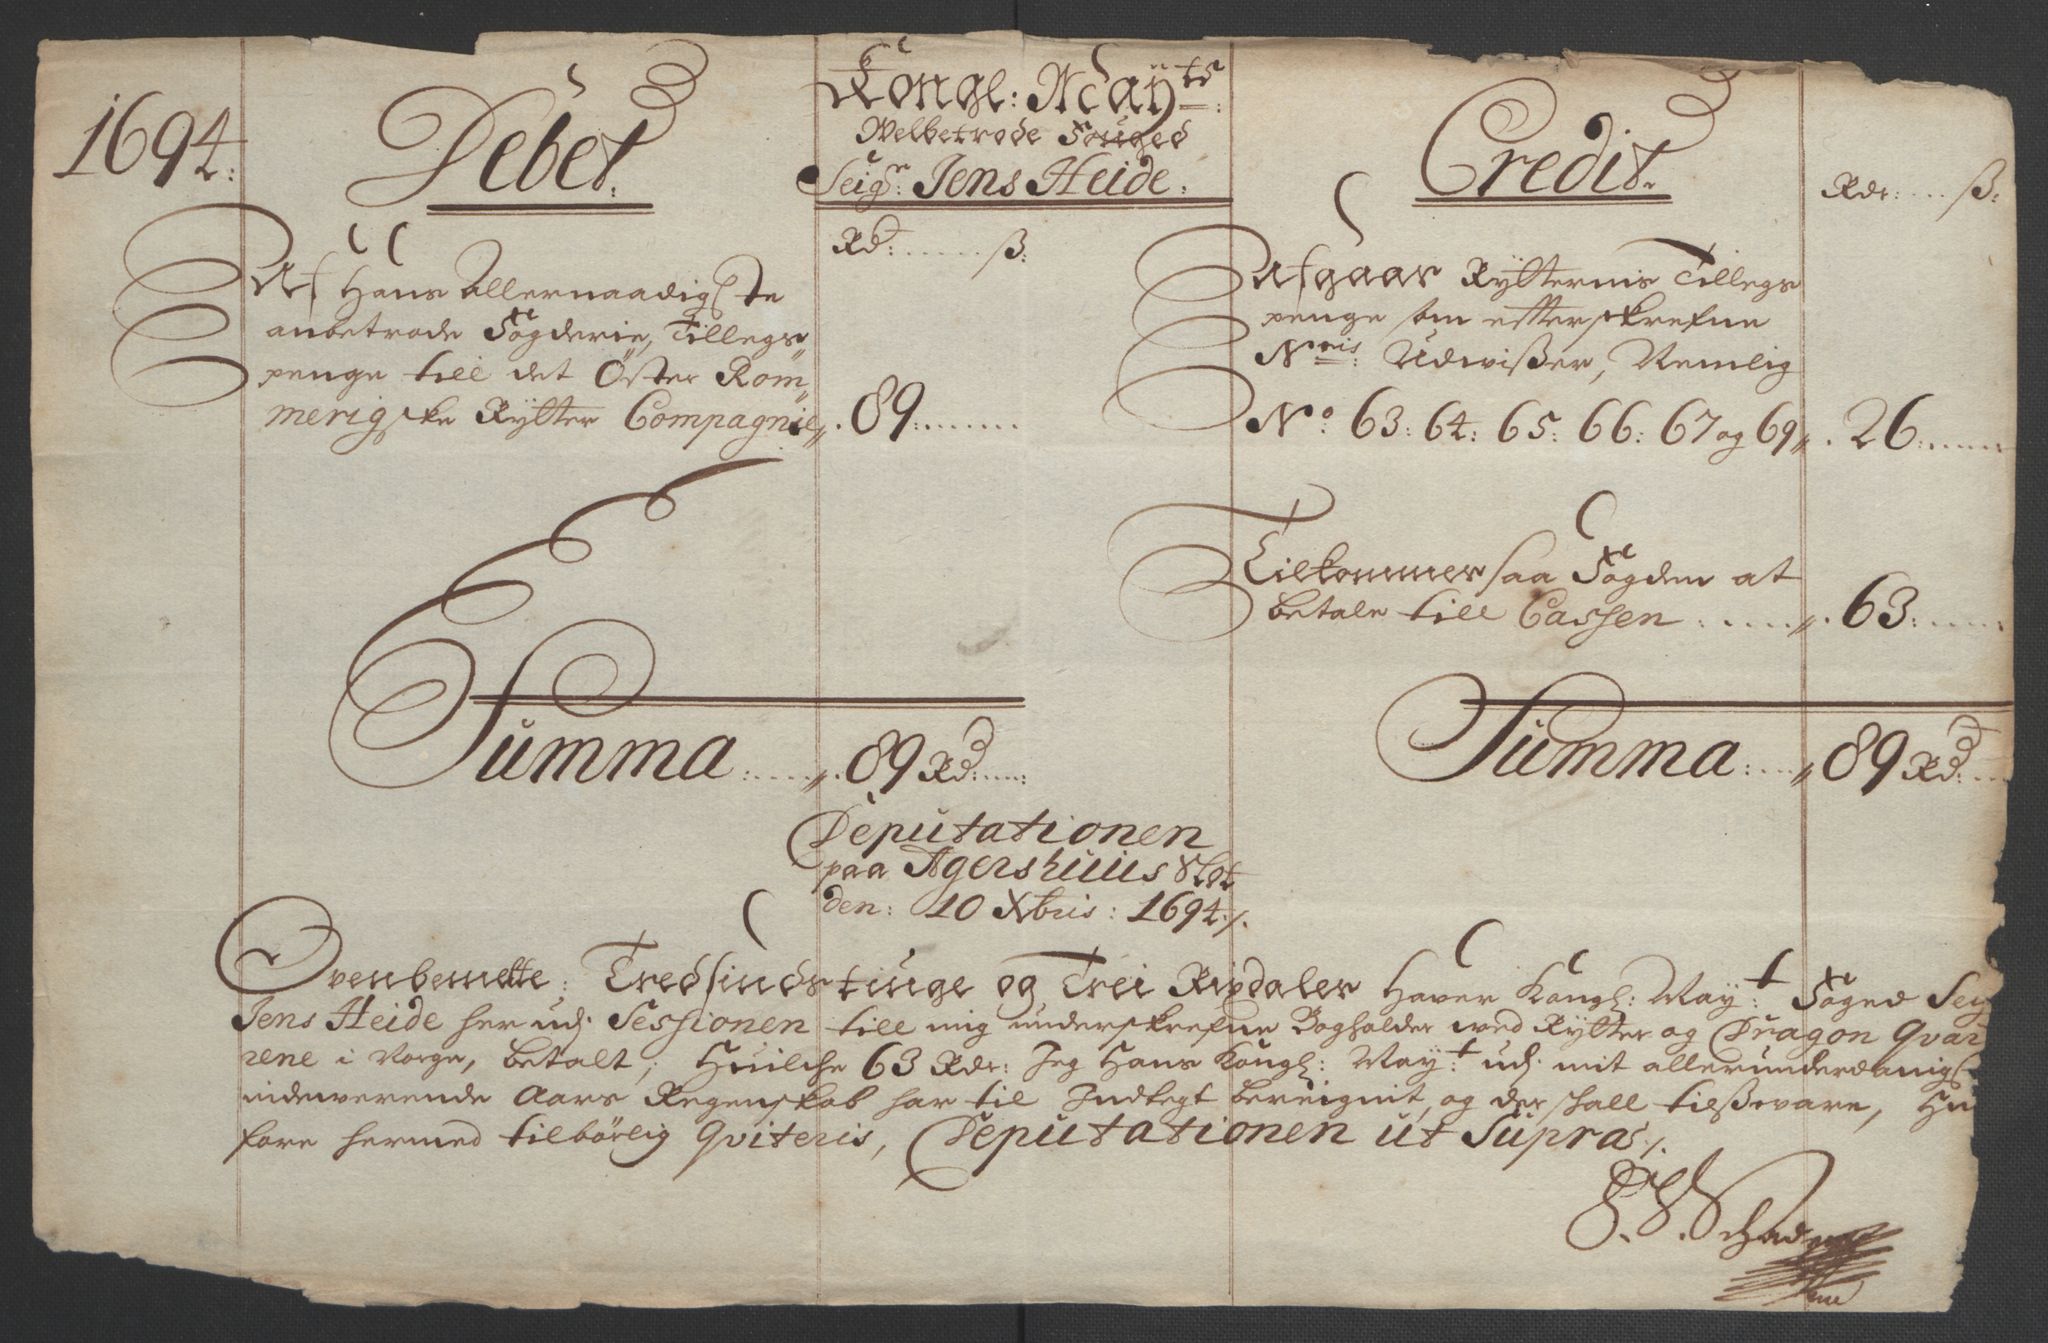 1694:
Debet.
Kongl: Maÿts:
Welbetrode Fouged
Seigr: Jens Heide.
Credit.
Rdr: .... ß:
Rd: ...... ß:
Af Hans Allernaadigste
anbetrode Fogderie, Tillegs
penge till det Öster Rom„
merigske Rÿtter Compagnie„. 89: .......
Afgaar Rÿtternis Tillegs
penge som efterskrefne
Nris: Udwißer, Nemlig
No: 63: 64: 65: 66: 67 og 69„. 26: .......
Tilkommer saa Fogden at
betale till Cassen ......„. 63: .......
Summa: .....„. 89 Rd: ....:
Summa: ....„ 89 Rd: ...
Deputationen
paa Agershuus Slot
den: 10 Xbris: 1694 ./.
Ovenbemelte: Tredsindstiuge og Trei Rixdaler Haver Kongl: Maÿt: Foged Seig
Jens Heide her udj Sessionen till mig underskrefne Bogholder wed Rÿtter og Dragon Qvar
rene i Norge, betalt, Huilche 63 Rdr: Jeg Hans Kongl: Maÿt: udj mit allerunderdanigst
indewerende Aars Regenskab har til Indtegt bereignit, og der skall tilßvare, Hu
fore hermed tilbörlig Qviteris, Deputationen ut Supra ./.